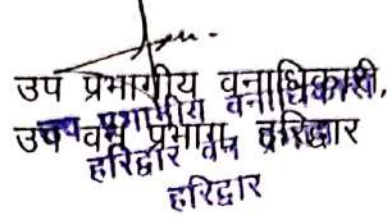 उप प्रभागीय वनाधिकारी,
उप वन प्रभाग हरिद्वार
उप प्रभागीय वनाधिकारी
हरिद्वार वन प्रभाग
हरिद्वार